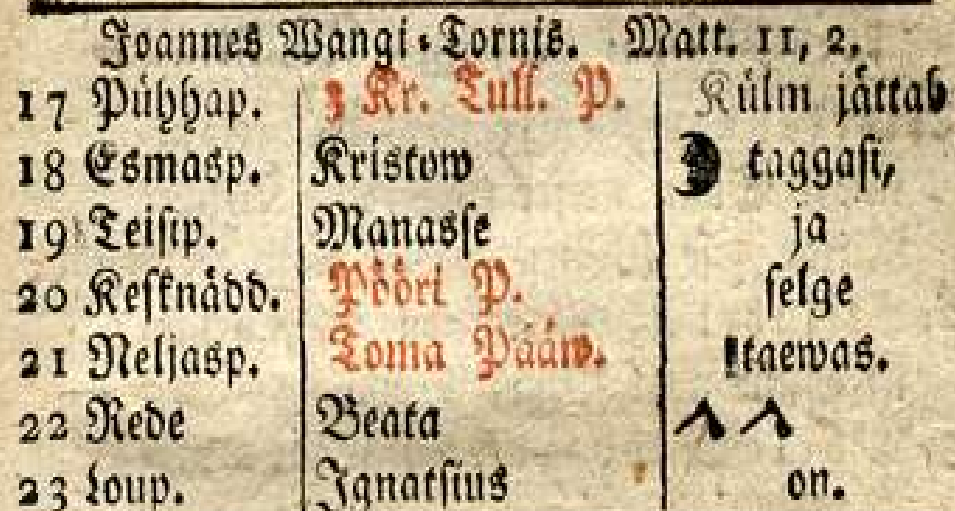 Joannes Wangi-Tornis. Matt. 11, 2.
17 Pühhap. 3 Kr. Tull. P. Külm jättab
18 Esmasp. Kristow taggasi,
19 Teisip. Manasse ja
20 Kesknådd. Pööri P. selge
21 Neljasp. Toma Pääw. taewas.
22 Rede Beata
23 Loup. Ignatsius on.